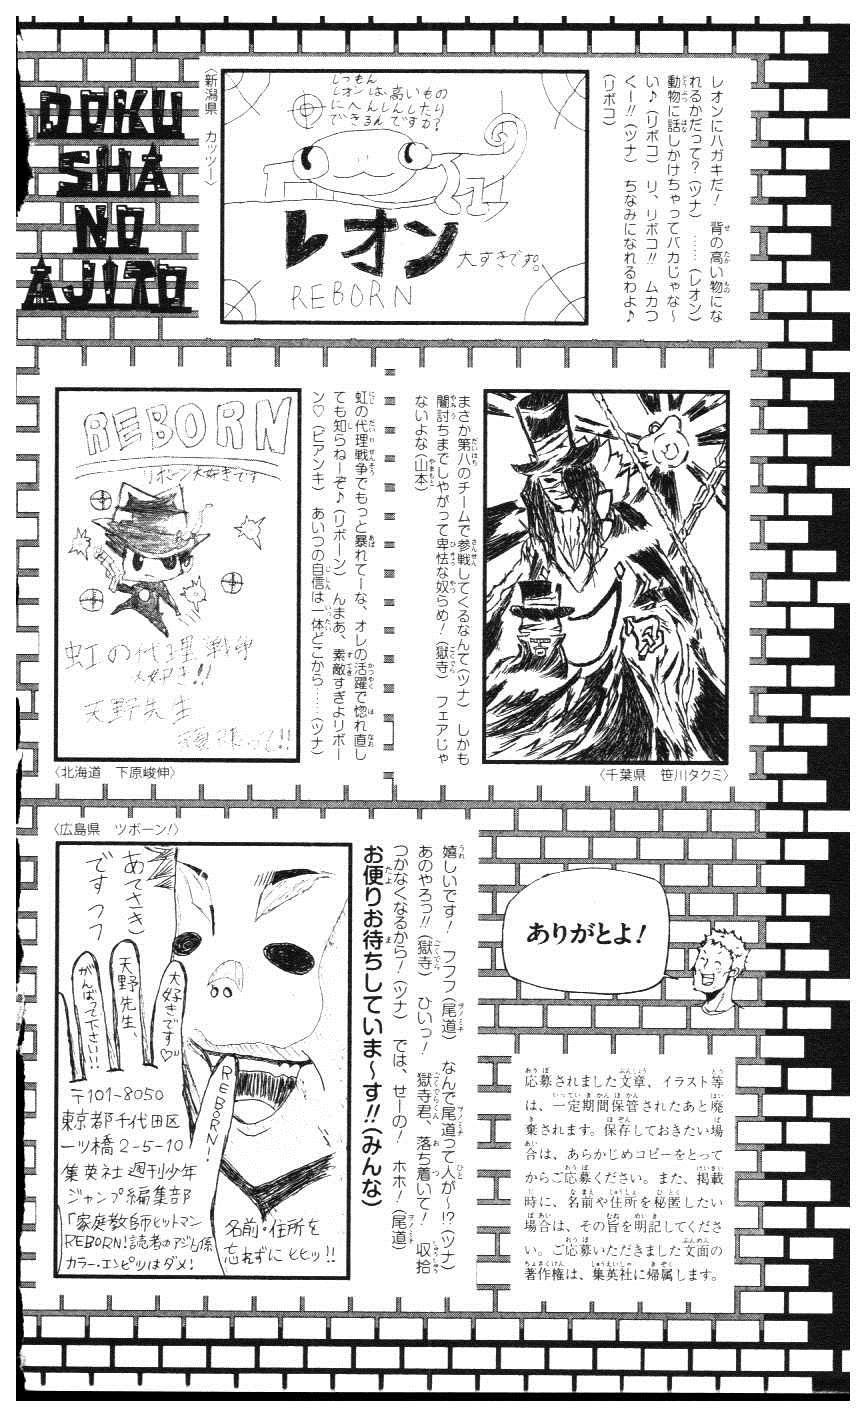 DOKU
SHA
NO
AJITO
レオンにハガキだ！　背の高い物にな
れるかだって？（ツナ）　……（レオン）
動物に話しかけちゃってバカじゃな〜
い♪（リボコ）　リ、リボコ!!　ムカつ
くー!!（ツナ）　ちなみになれるわよ♪
（リボコ）
しつもん
レオンは、高いもの
にへんしんしたり
できるんですか？
レオン
大すきです。
REBORN
〈新潟県　カッツー〉
まさか第八のチームで参戦してくるなんて（ツナ）　しかも
闇討ちまでしやがって卑怯な奴らめ！（獄寺）　フェアじゃ
ないよな（山本）
〈千葉県　笹川タクミ〉
REBORN
リボーン大好きです
虹の代理戦争
大好き!!
天野先生
頑張って!!
〈北海道　下原峻伸〉
虹の代理戦争でもっと暴れてーな、オレの活躍で惚れ直し
ても知らねーぞ♪（リボーン）　んまあ、素敵すぎよリボー
ン♡（ビアンキ）　あいつの自信は一体どこから……（ツナ）
〈広島県　ツボーン！〉
あてさき
ですフフ
大好きです♡
天野先生、
がんばって下さい!!
REBORN!
〒101-8050
東京都千代田区
一ツ橋2-5-10
集英社 週刊少年
ジャンプ編集部
「家庭教師ヒットマン
REBORN！読者のアジト」係
カラー・エンピツはダメ！
名前・住所を
忘れずにヒヒッ!!
嬉しいです！　フフフ（尾道）　なんで尾道って人がー!?（ツナ）
あのやろっ!!（獄寺）　ひいっ！　獄寺君、落ち着いて！　収拾
つかなくなるから！（ツナ）　では、せーの！　ホホ！（尾道）
お便りお待ちしていま〜す!!（みんな）
ありがとよ！
応募されました文章、イラスト等
は、一定期間保管されたあと廃
棄されます。保存しておきたい場
合は、あらかじめコピーをとって
からご応募ください。また、掲載
時に、名前や住所を秘匿したい
場合は、その旨を明記してくださ
い。ご応募いただきました文面の
著作権は、集英社に帰属します。